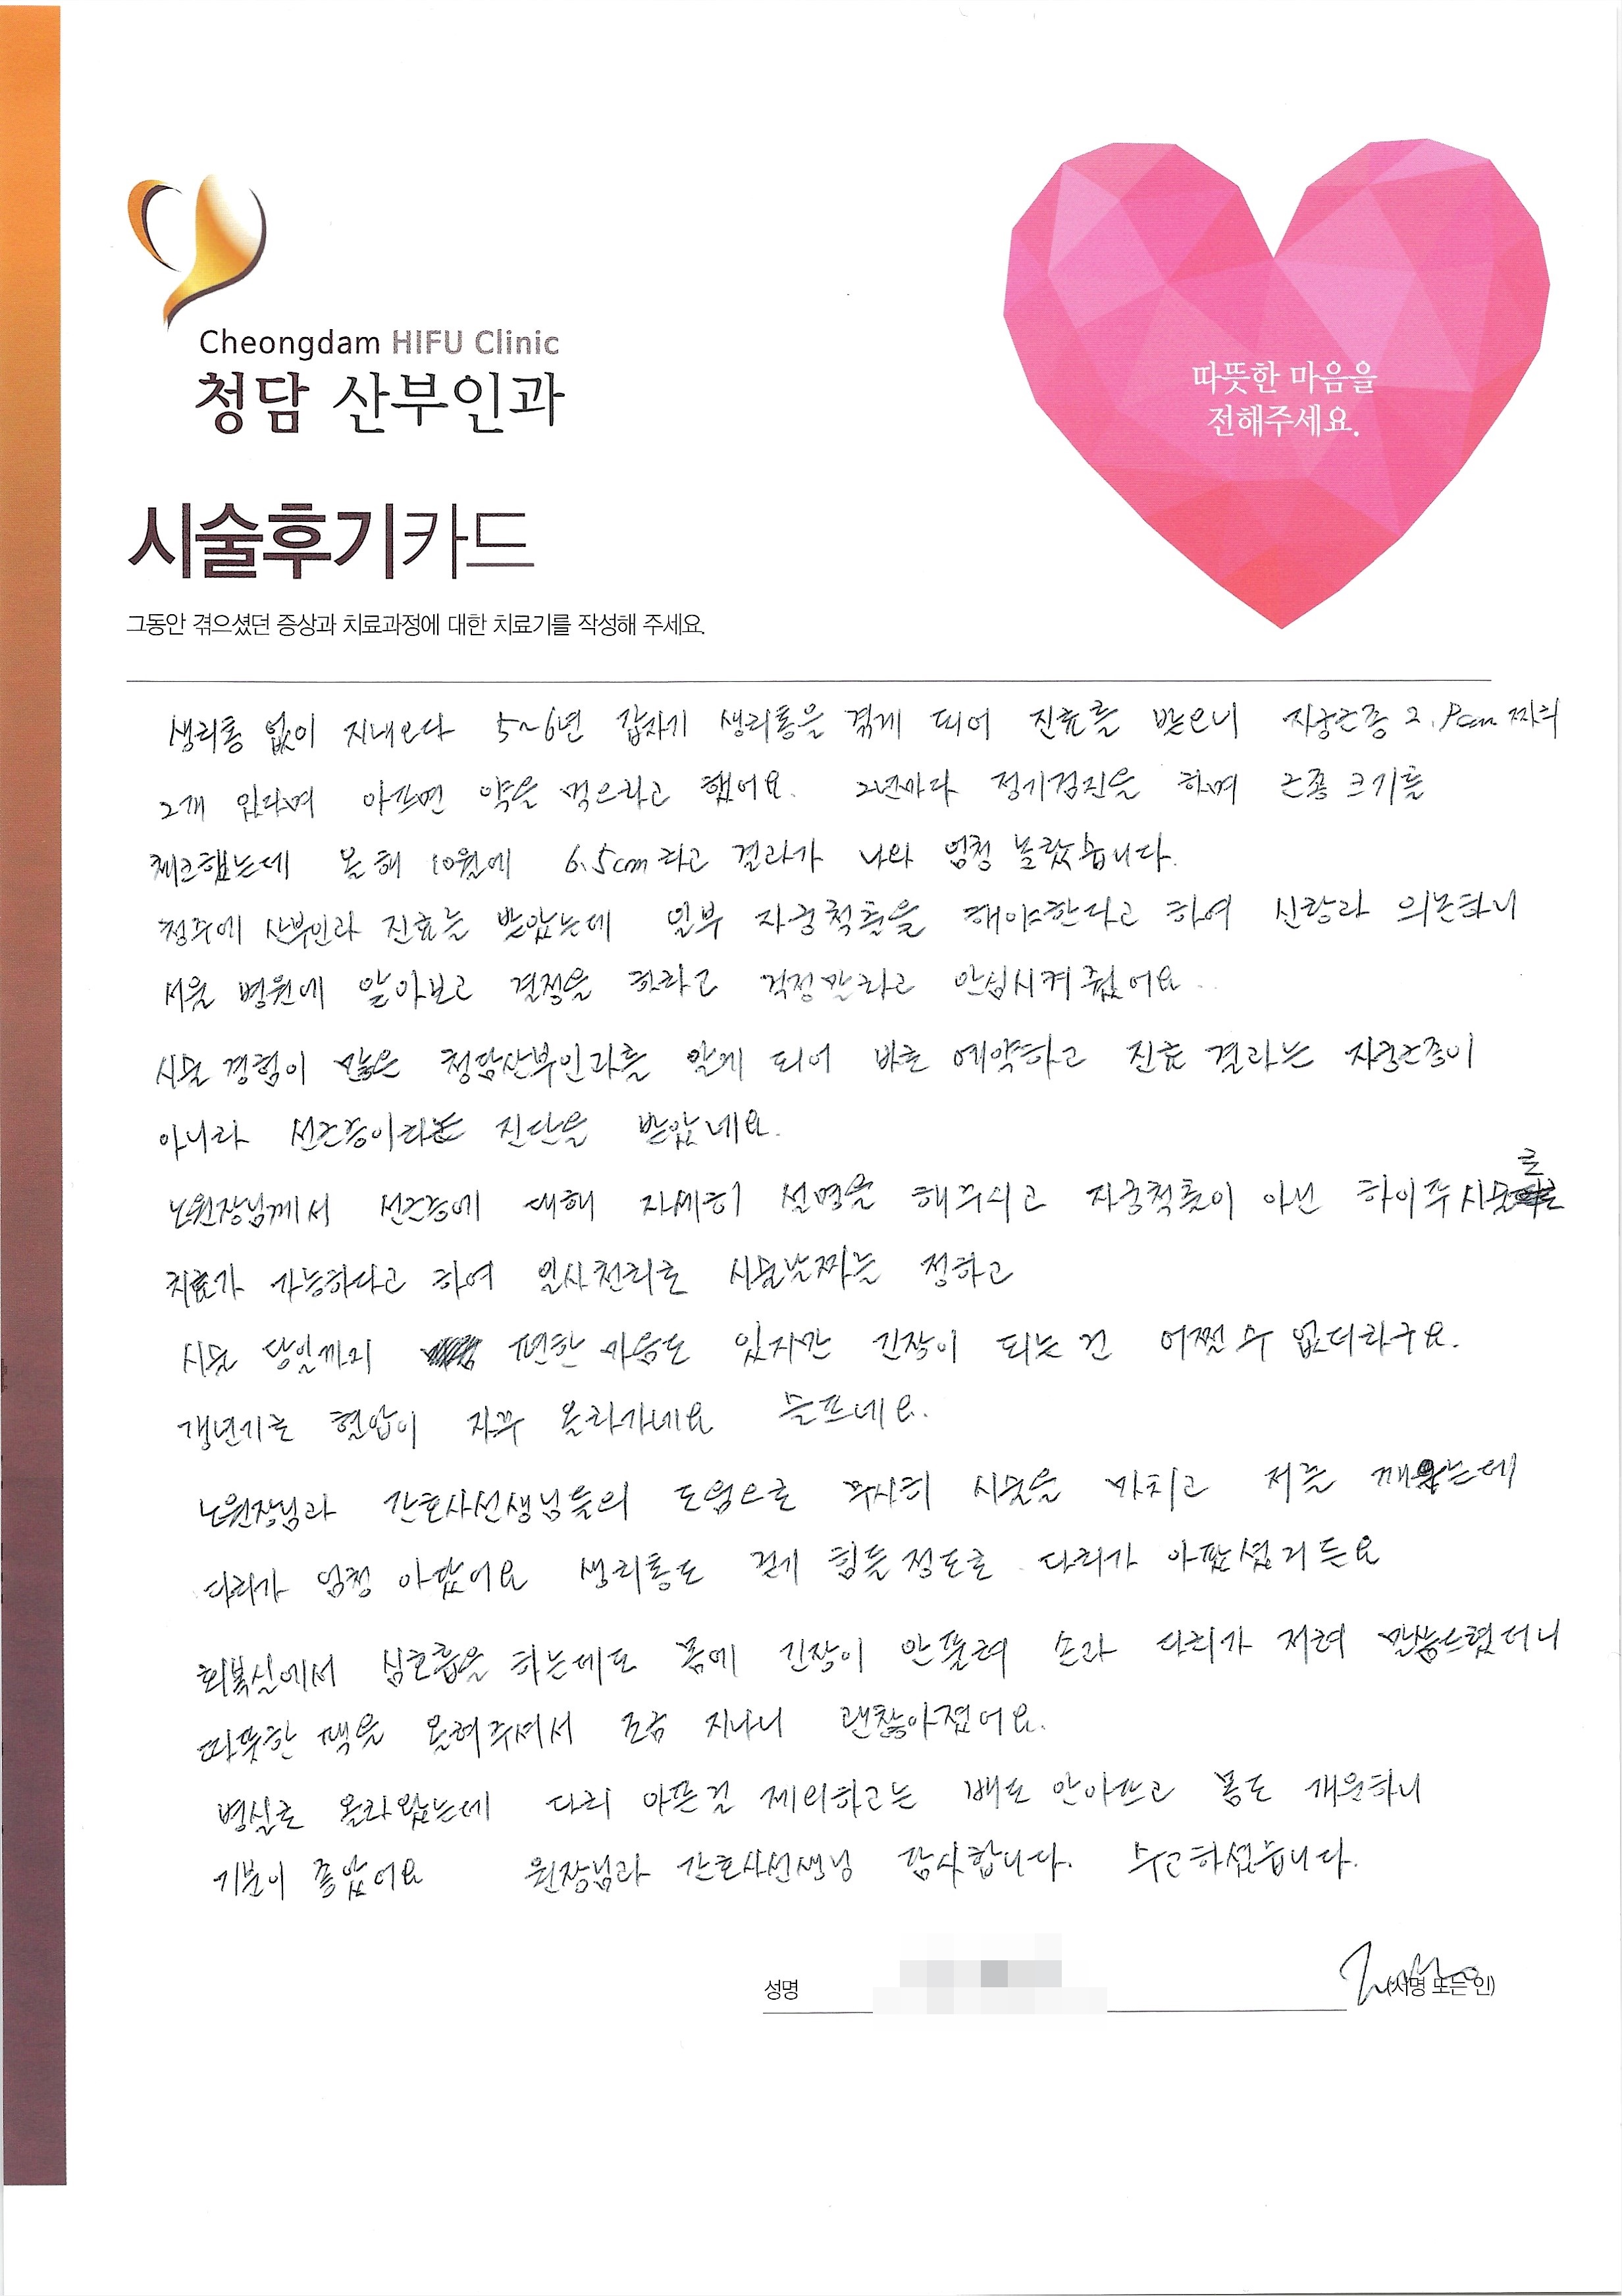 Cheongdam HIFU Clinic
청담 산부인과
따뜻한 마음을
전해주세요.
시술후기카드
그동안 겪으셨던 증상과 치료과정에 대한 치료기를 작성해 주세요.
생리통 없이 지내오다 5~6년 갑자기 생리통을 겪게 되어 진료를 받으니 자궁근종 짜리
2개 있다며 아프면 약을 먹으라고 했어요. 2년마다 정기검진을 하며 근종 크기를
체크했는데 올해 10월에 6.5cm라고 결과가 나와 엄청 놀랐습니다.
청주에 산부인과 진료를 받았는데 일부 자궁적출을 해야한다고 하여 신랑과 의논하니
서울 병원에 알아보고 결정을 하라고 걱정말라고 안심시켜줬어요..
시술 경험이 많은 청담산부인과를 알게 되어 바로 예약하고 진료 결과는 자궁근종이
아니라 선근증이라는 진단을 받았네요.
노원장님께서 선근증에 대해 자세히 설명을 해주시고 자궁적출이 아닌 하이푸시술로
치료가 가능하다고 하여 일사천리로 시술날짜를 정하고
시술 당일까지 편한 마음도 있지만 긴장이 되는건 어쩔수 없더라구요.
갱년기로 혈압이 자꾸 올라가네요 슬프네요.
노원장님과 간호사선생님들의 도움으로 무사히 시술을 마치고 저를 깨웠는데
다리가 엄청 아팠어요 생리통도 걷기 힘들정도로 다리가 아팠었거든요
회복실에서 심호흡을 하는데도 몸에 긴장이 안풀려 손과 다리가 저려 말씀드렸더니
따뜻한 팩을 올려주셔서 조금 지나니 괜찮아졌어요.
병실로 올라왔는데 다리 아픈걸 제외하고는 배도 안아프고 몸도 개운하니
기분이 좋았어요 원장님과 간호사선생님 감사합니다. 수고하셨습니다.
성명 (서명 또는 인)